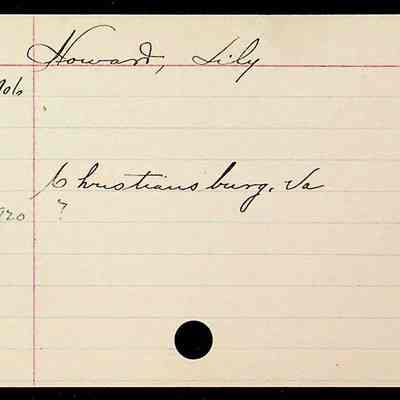 Howard, Lily
Christiansburg, Va
?